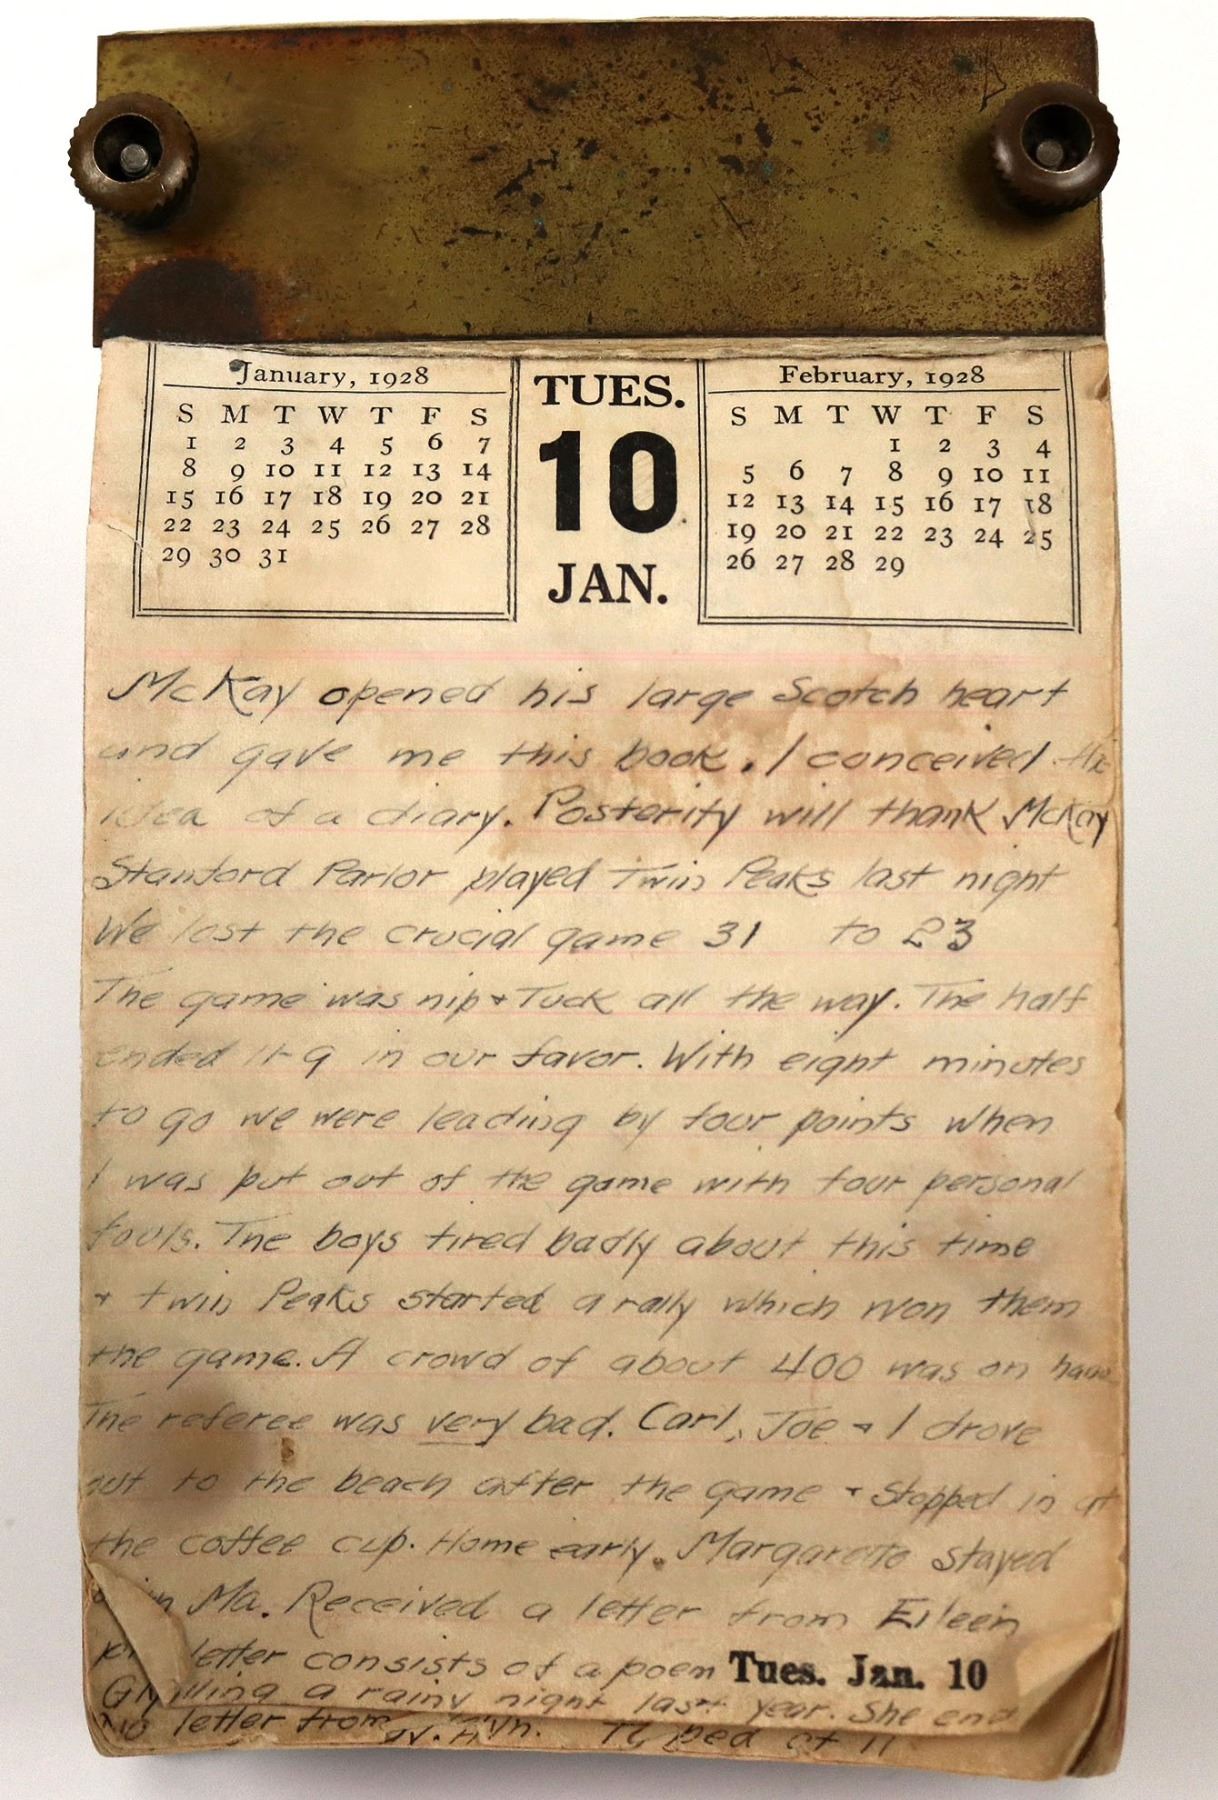 January, 1928
S M T W T F S
1 2 3 4 5 6 7
8 9 10 11 12 13 14
15 16 17 18 19 20 21
22 23 24 25 26 27 28
29 30 31
TUES.
10
JAN.
February, 1928
S M T W T F S
1 2 3 4
5 6 7 8 9 10 11
12 13 14 15 16 17 18
19 20 21 22 23 24 25
26 27 28 29
McKay opened his large Scotch heart
and gave me this book. I conceived the
idea of a diary. Posterity will thank McKay
Stanford Parlor played Twin Peaks last night
We lost the crucial game 31 to 23
The game was nip + Tuck all the way. The half
ended 11-9 in our favor. With eight minutes
to go we were leading by four points when
I was put out of the game with four personal
fouls. The boys tired badly about this time
+ Twin Peaks started a rally which won them
the game. A crowd of about 400 was on hand
The referee was very bad. Carl, Joe + I drove
out to the beach after the game + stopped in at
the coffee cup. Home early. Margarette stayed
Ma. Received a letter from Eileen
letter consists of a poem
Tues. Jan. 10
a rainy night last year. She
letter from
bed at 11